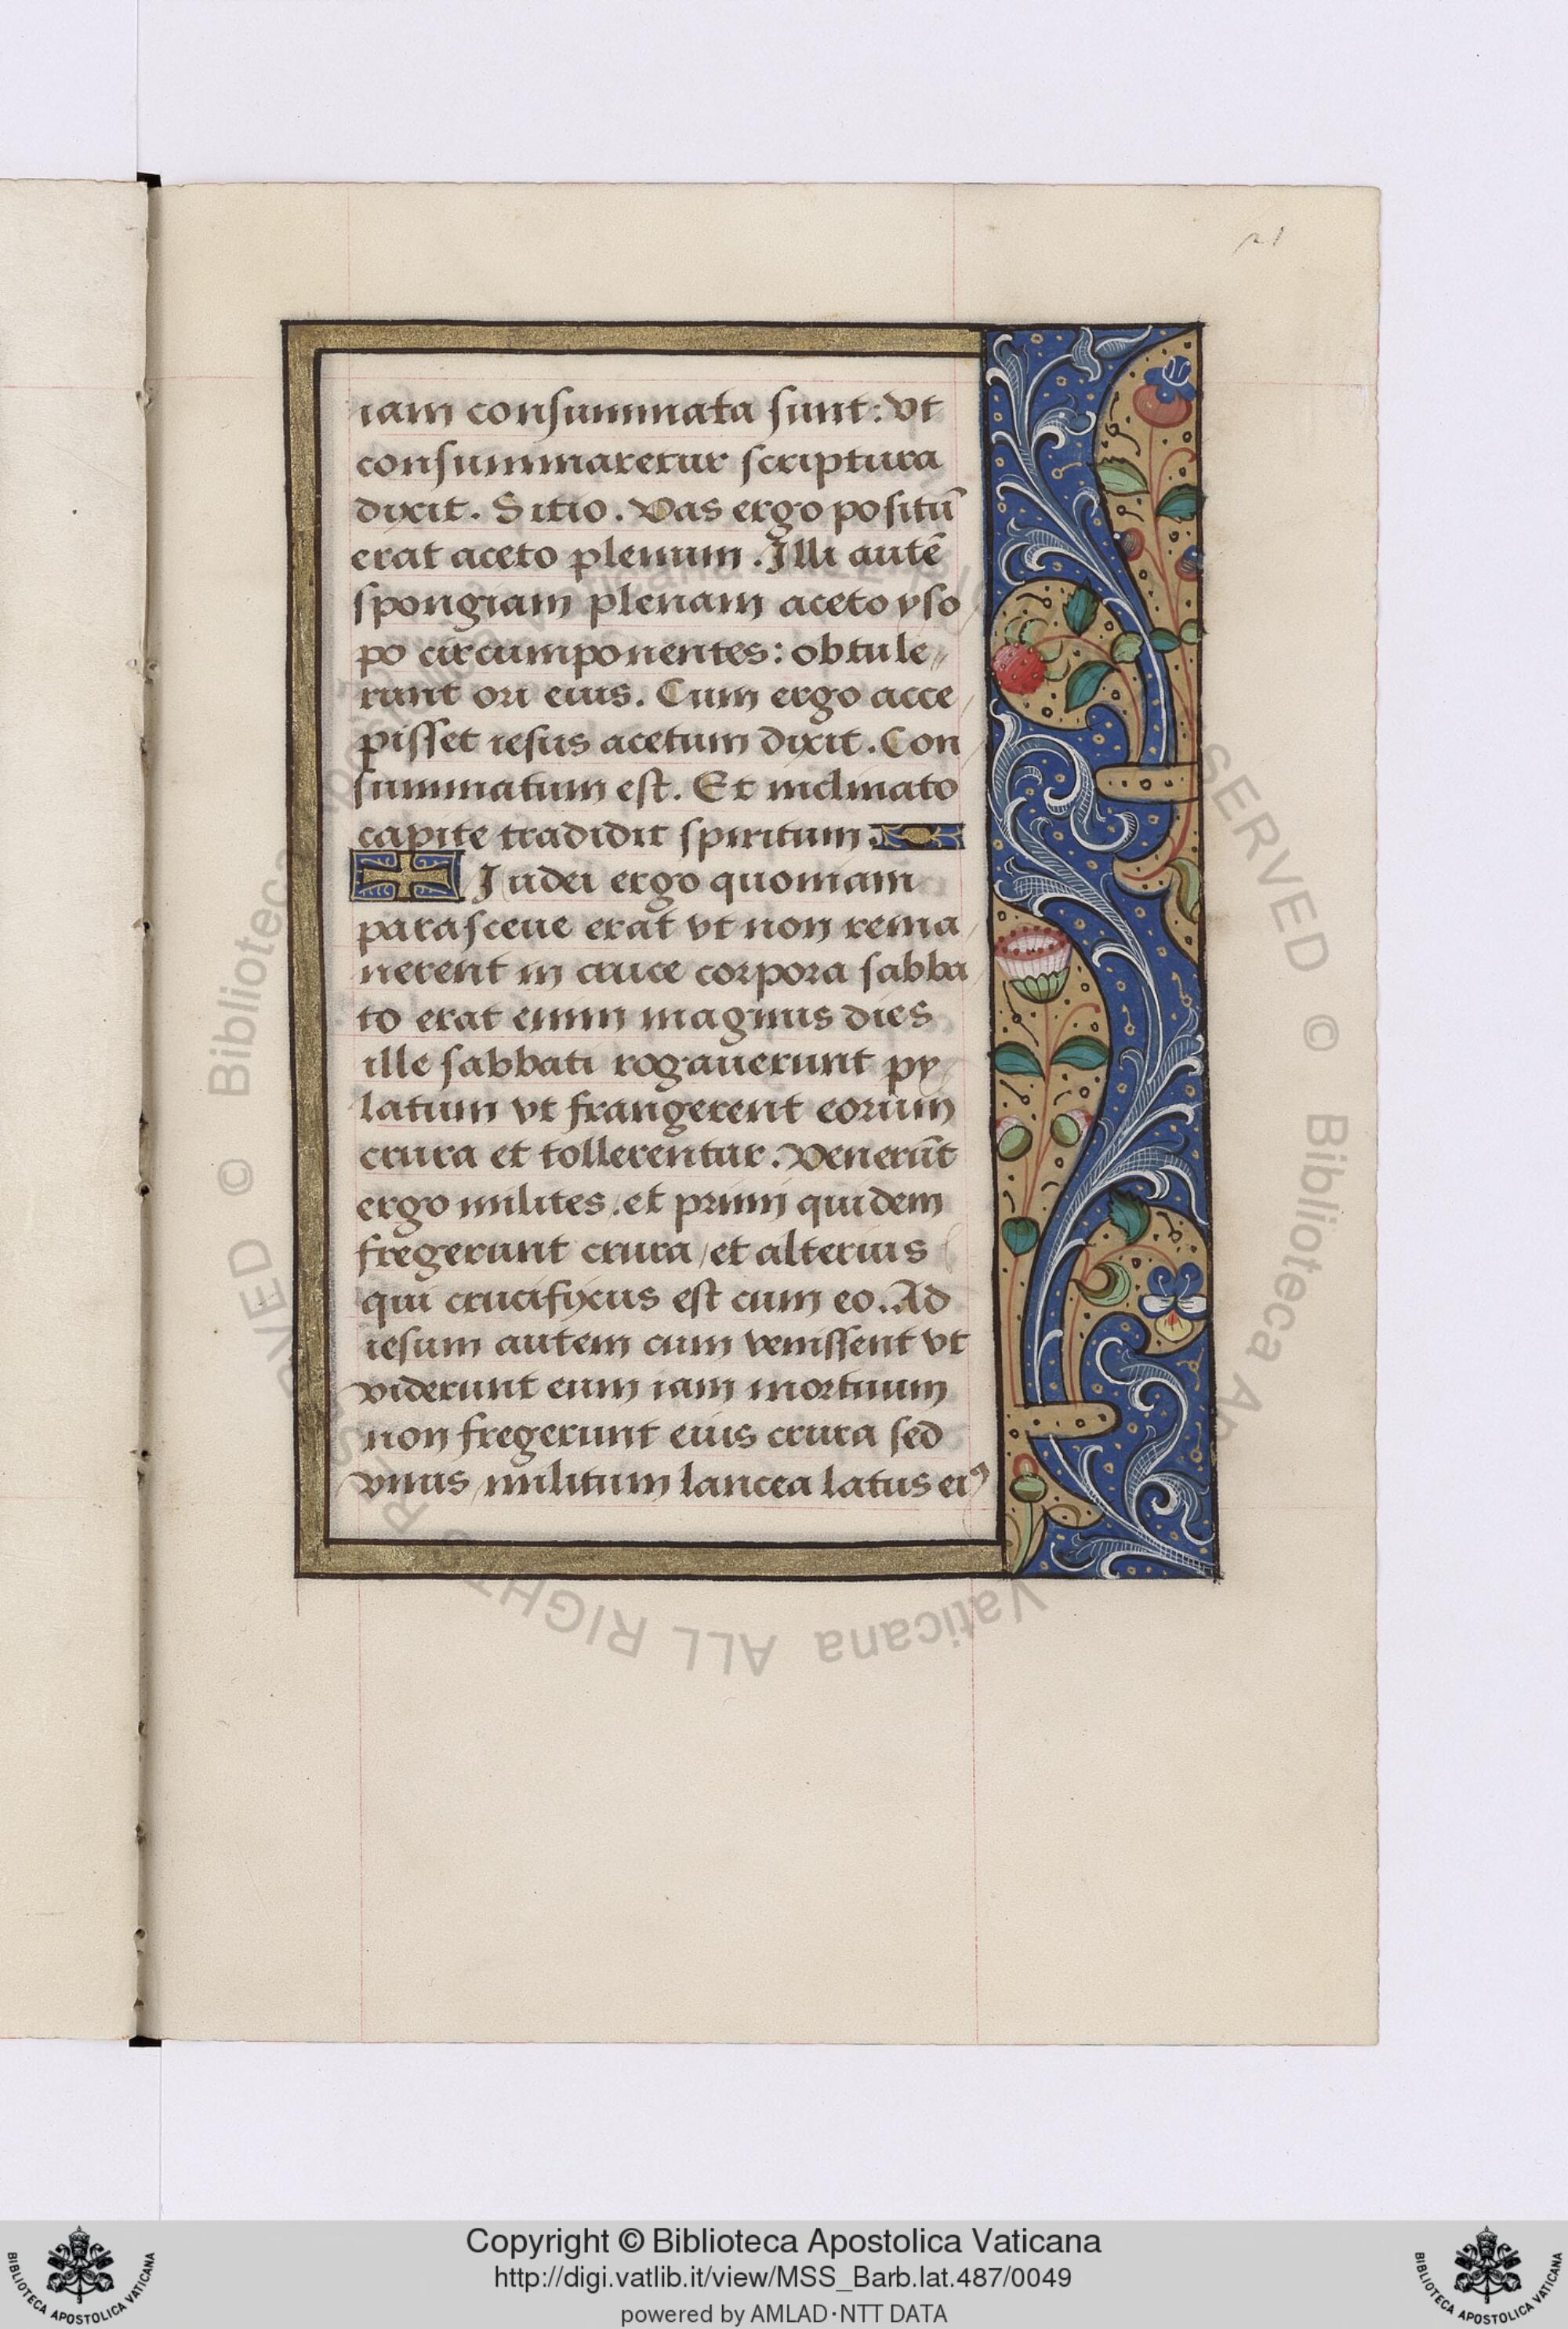 21
iam consummata sunt: vt
consummaretur scriptura
dixit. Sitio. Vas ergo positū
erat aceto plenum. Illi autē
spongiam plenam aceto yso
po circumponentes: obtule
runt ori eius. Cum ergo acce
pisset iesus acetum dixit. Con
summatum est. Et inclinato
capite tradidit spiritum.
Iudei ergo quoniam
parasceue erat vt non rema
nerent in cruce corpora sabba
to erat enim magnus dies
ille sabbati rogauerunt py
latum vt frangerent eorum
crura et tollerentur. Venerūt
ergo milites. et primi quidem
fregerunt crura / et alterius
qui crucifixus est cum eo. Ad
iesum autem cum venissent vt
viderunt eum iam mortuum
non fregerunt eius crura sed
vnus militum lancea latus eiꝰ
Copyright © Biblioteca Apostolica Vaticana
http://digi.vatlib.it/view/MSS_Barb.lat.487/0049
powered by AMLAD·NTT DATA
BIBLIOTECA APOSTOLICA VATICANA
BIBLIOTECA APOSTOLICA VATICANA